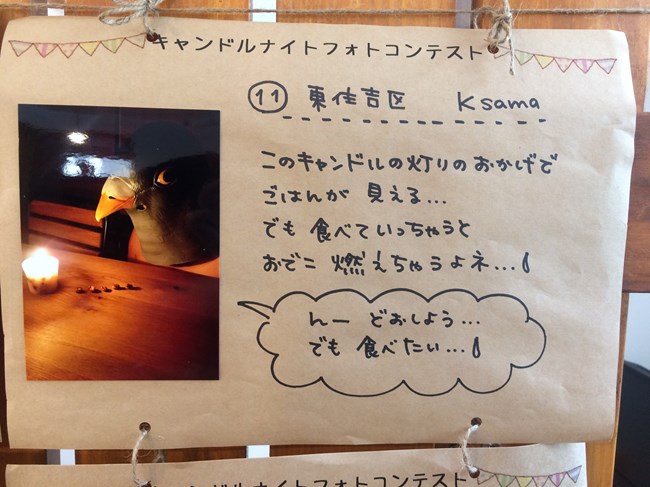 キャンドルナイトフォトコンテスト
⑪ 東住吉区 Ksama
このキャンドルの灯りのおかげで
ごはんが 見える...
でも 食べていっちゃうと
おでこ 燃えちゃうよネ...
んー どおしよう...
でも 食べたい...
キャンドルナイトフォトコンテスト